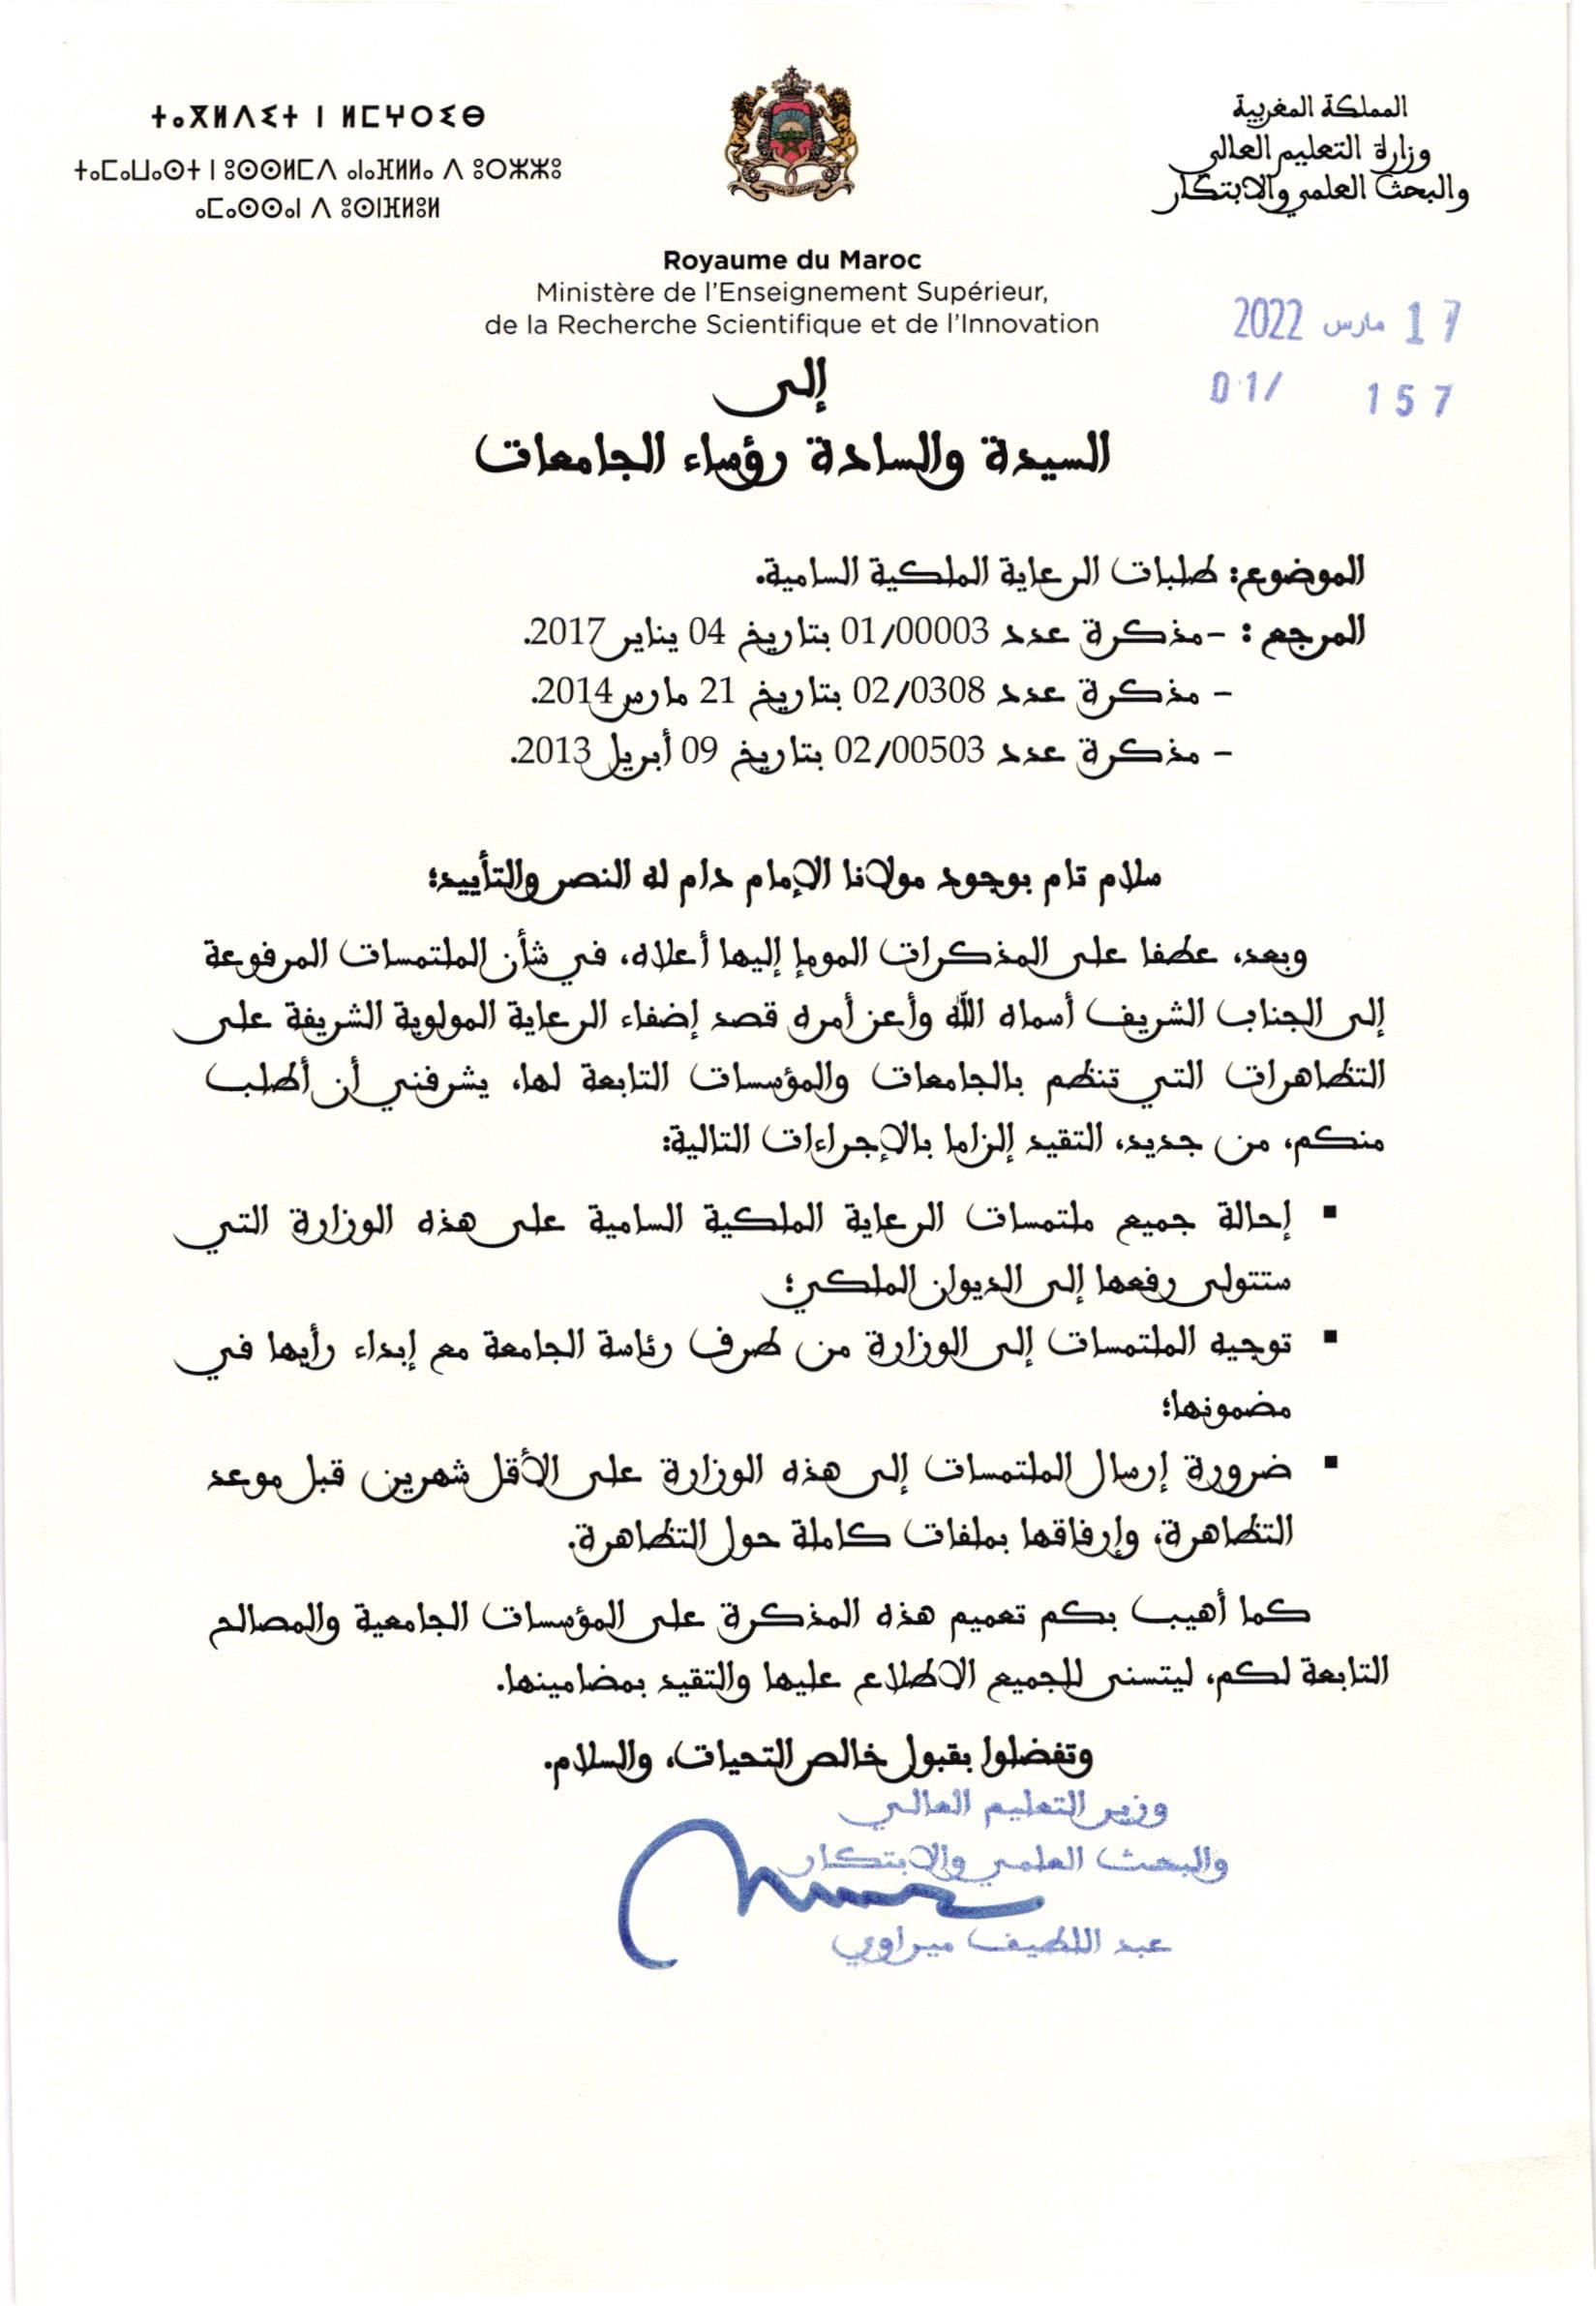 ⵜⴰⴳⵍⴷⵉⵜ ⵏ ⵍⵎⵖⵔⵉⴱ
ⵜⴰⵎⴰⵡⴰⵙⵜ ⵏ ⵓⵙⵙⵍⵎⴷ ⴰⵏⴰⴼⵍⵍⴰ ⴷ ⵓⵔⵣⵣⵓ
ⴰⵎⴰⵙⵙⴰⵏ ⴷ ⵓⵙⵏⴼⵍⵓⵍ
المملكة المغربية
وزارة التعليم العالي
والبحث العلمي والابتكار
Royaume du Maroc
Ministère de l'Enseignement Supérieur,
de la Recherche Scientifique et de l'Innovation
17 مارس 2022
01/ 157
إلى
السيدة والسادة رؤساء الجامعات
الموضوع: طلبات الرعاية الملكية السامية.
المرجع : -مذكرة عدد 01/00003 بتاريخ 04 يناير 2017.
- مذكرة عدد 02/0308 بتاريخ 21 مارس 2014.
- مذكرة عدد 02/00503 بتاريخ 09 أبريل 2013.
سلام تام بوجود مولانا الإمام دام له النصر والتأييد؛
وبعد، عطفا على المذكرات المومإ إليها أعلاه، في شأن الملتمسات المرفوعة
إلى الجناب الشريف أسماه الله وأعز أمره قصد إضفاء الرعاية المولوية الشريفة على
التظاهرات التي تنظم بالجامعات والمؤسسات التابعة لها، يشرفني أن أطلب
منكم، من جديد، التقيد إلزاما بالإجراءات التالية:
▪ إحالة جميع ملتمسات الرعاية الملكية السامية على هذه الوزارة التي
ستتولى رفعها إلى الديوان الملكي؛
▪ توجيه الملتمسات إلى الوزارة من طرف رئاسة الجامعة مع إبداء رأيها في
مضمونها؛
▪ ضرورة إرسال الملتمسات إلى هذه الوزارة على الأقل شهرين قبل موعد
التظاهرة، وإرفاقها بملفات كاملة حول التظاهرة.
كما أهيب بكم تعميم هذه المذكرة على المؤسسات الجامعية والمصالح
التابعة لكم، ليتسنى للجميع الاطلاع عليها والتقيد بمضامينها.
وتفضلوا بقبول خالص التحيات، والسلام.
وزير التعليم العالي
والبحث العلمي والابتكار
عبد اللطيف ميراوي